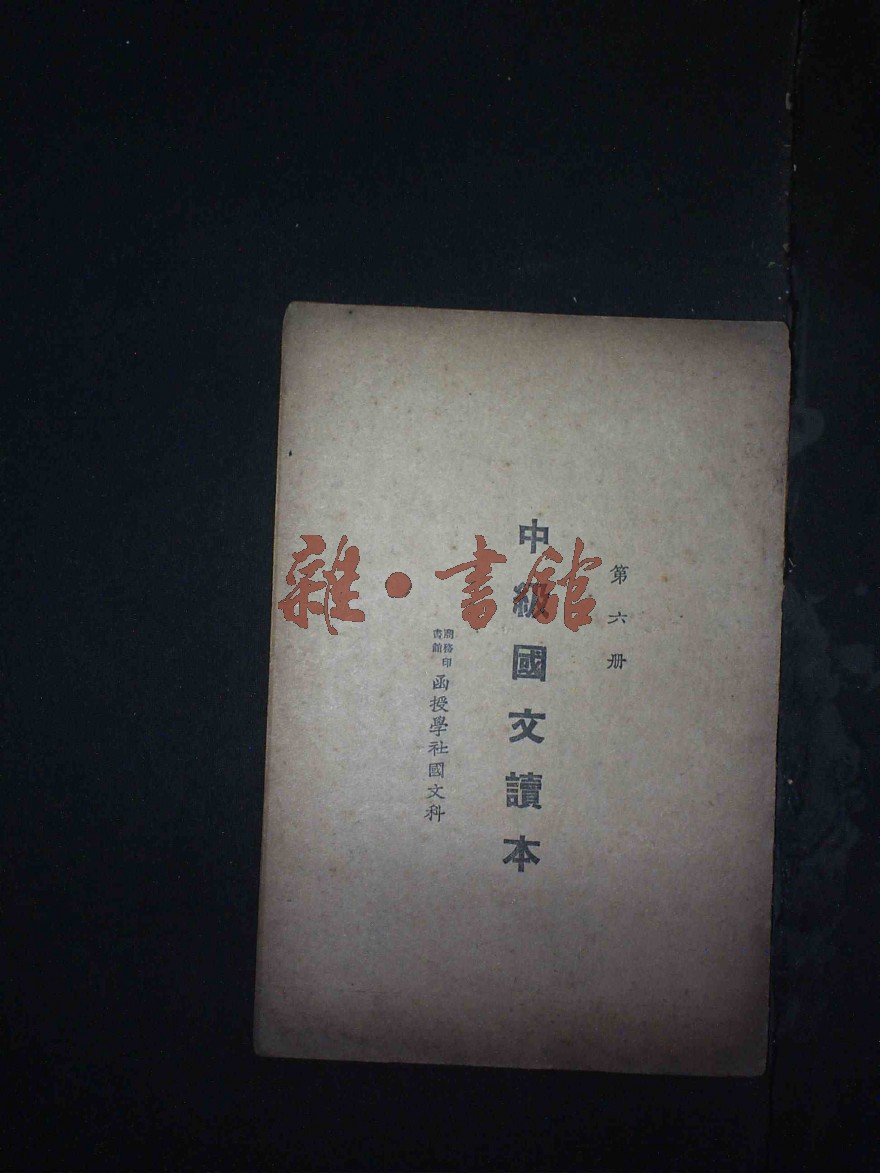 第六册
中級國文讀本
商務印書館函授學社國文科
雜·書舘